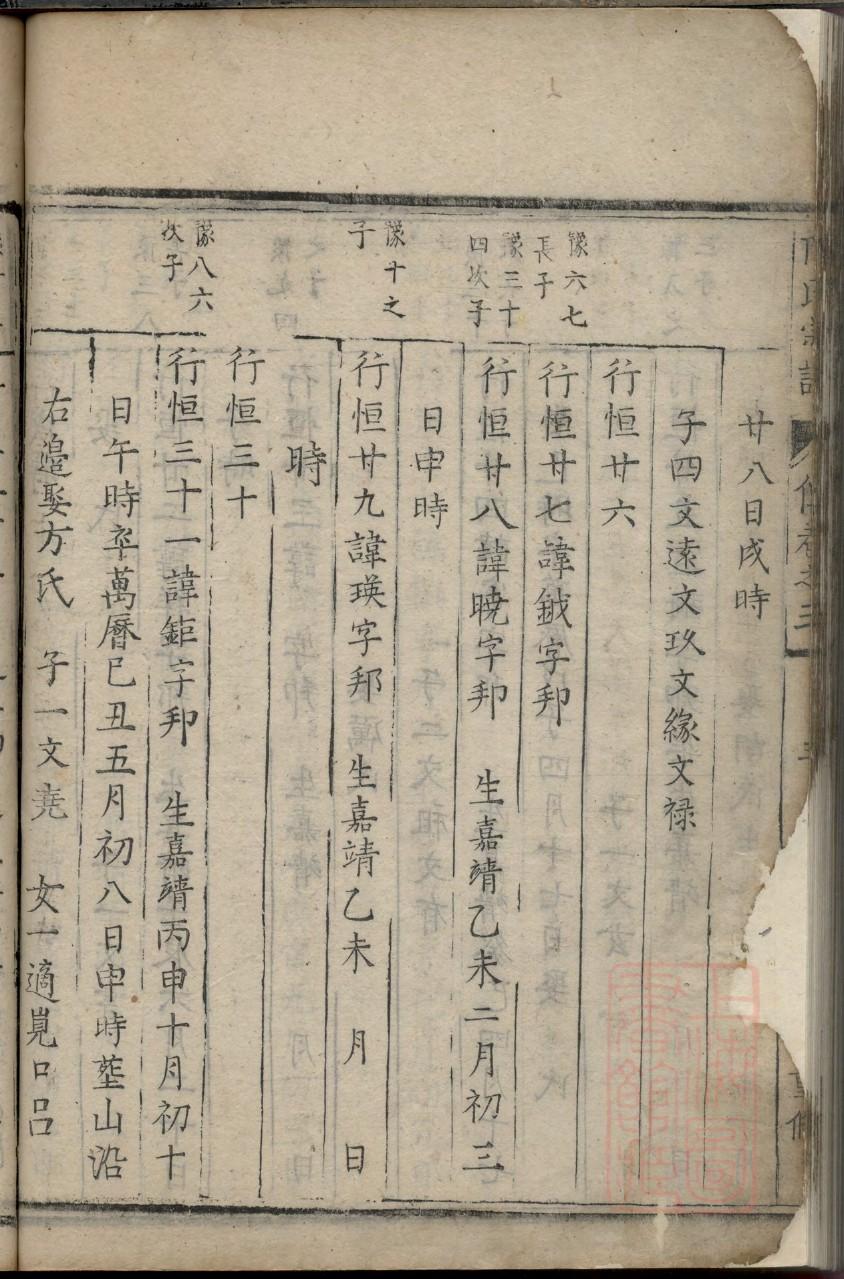 廿八日戌時
子四文遠文玖文緣文祿
行恒廿六
豫六七
長子
行恒廿七諱鉞字邦
豫三十
四次子
行恒廿八諱曉字邦　生嘉靖乙未二月初三
日申時
豫十之
子
行恒廿九諱瑛字邦　生嘉靖乙未　月　日
時
行恒三十
豫八六
次子
行恒三十一諱鉅字邦　生嘉靖丙申十月初十
日午時卒萬曆已丑五月初八日申時塟山沿
右邉娶方氏　子一文堯　女一適峴口吕